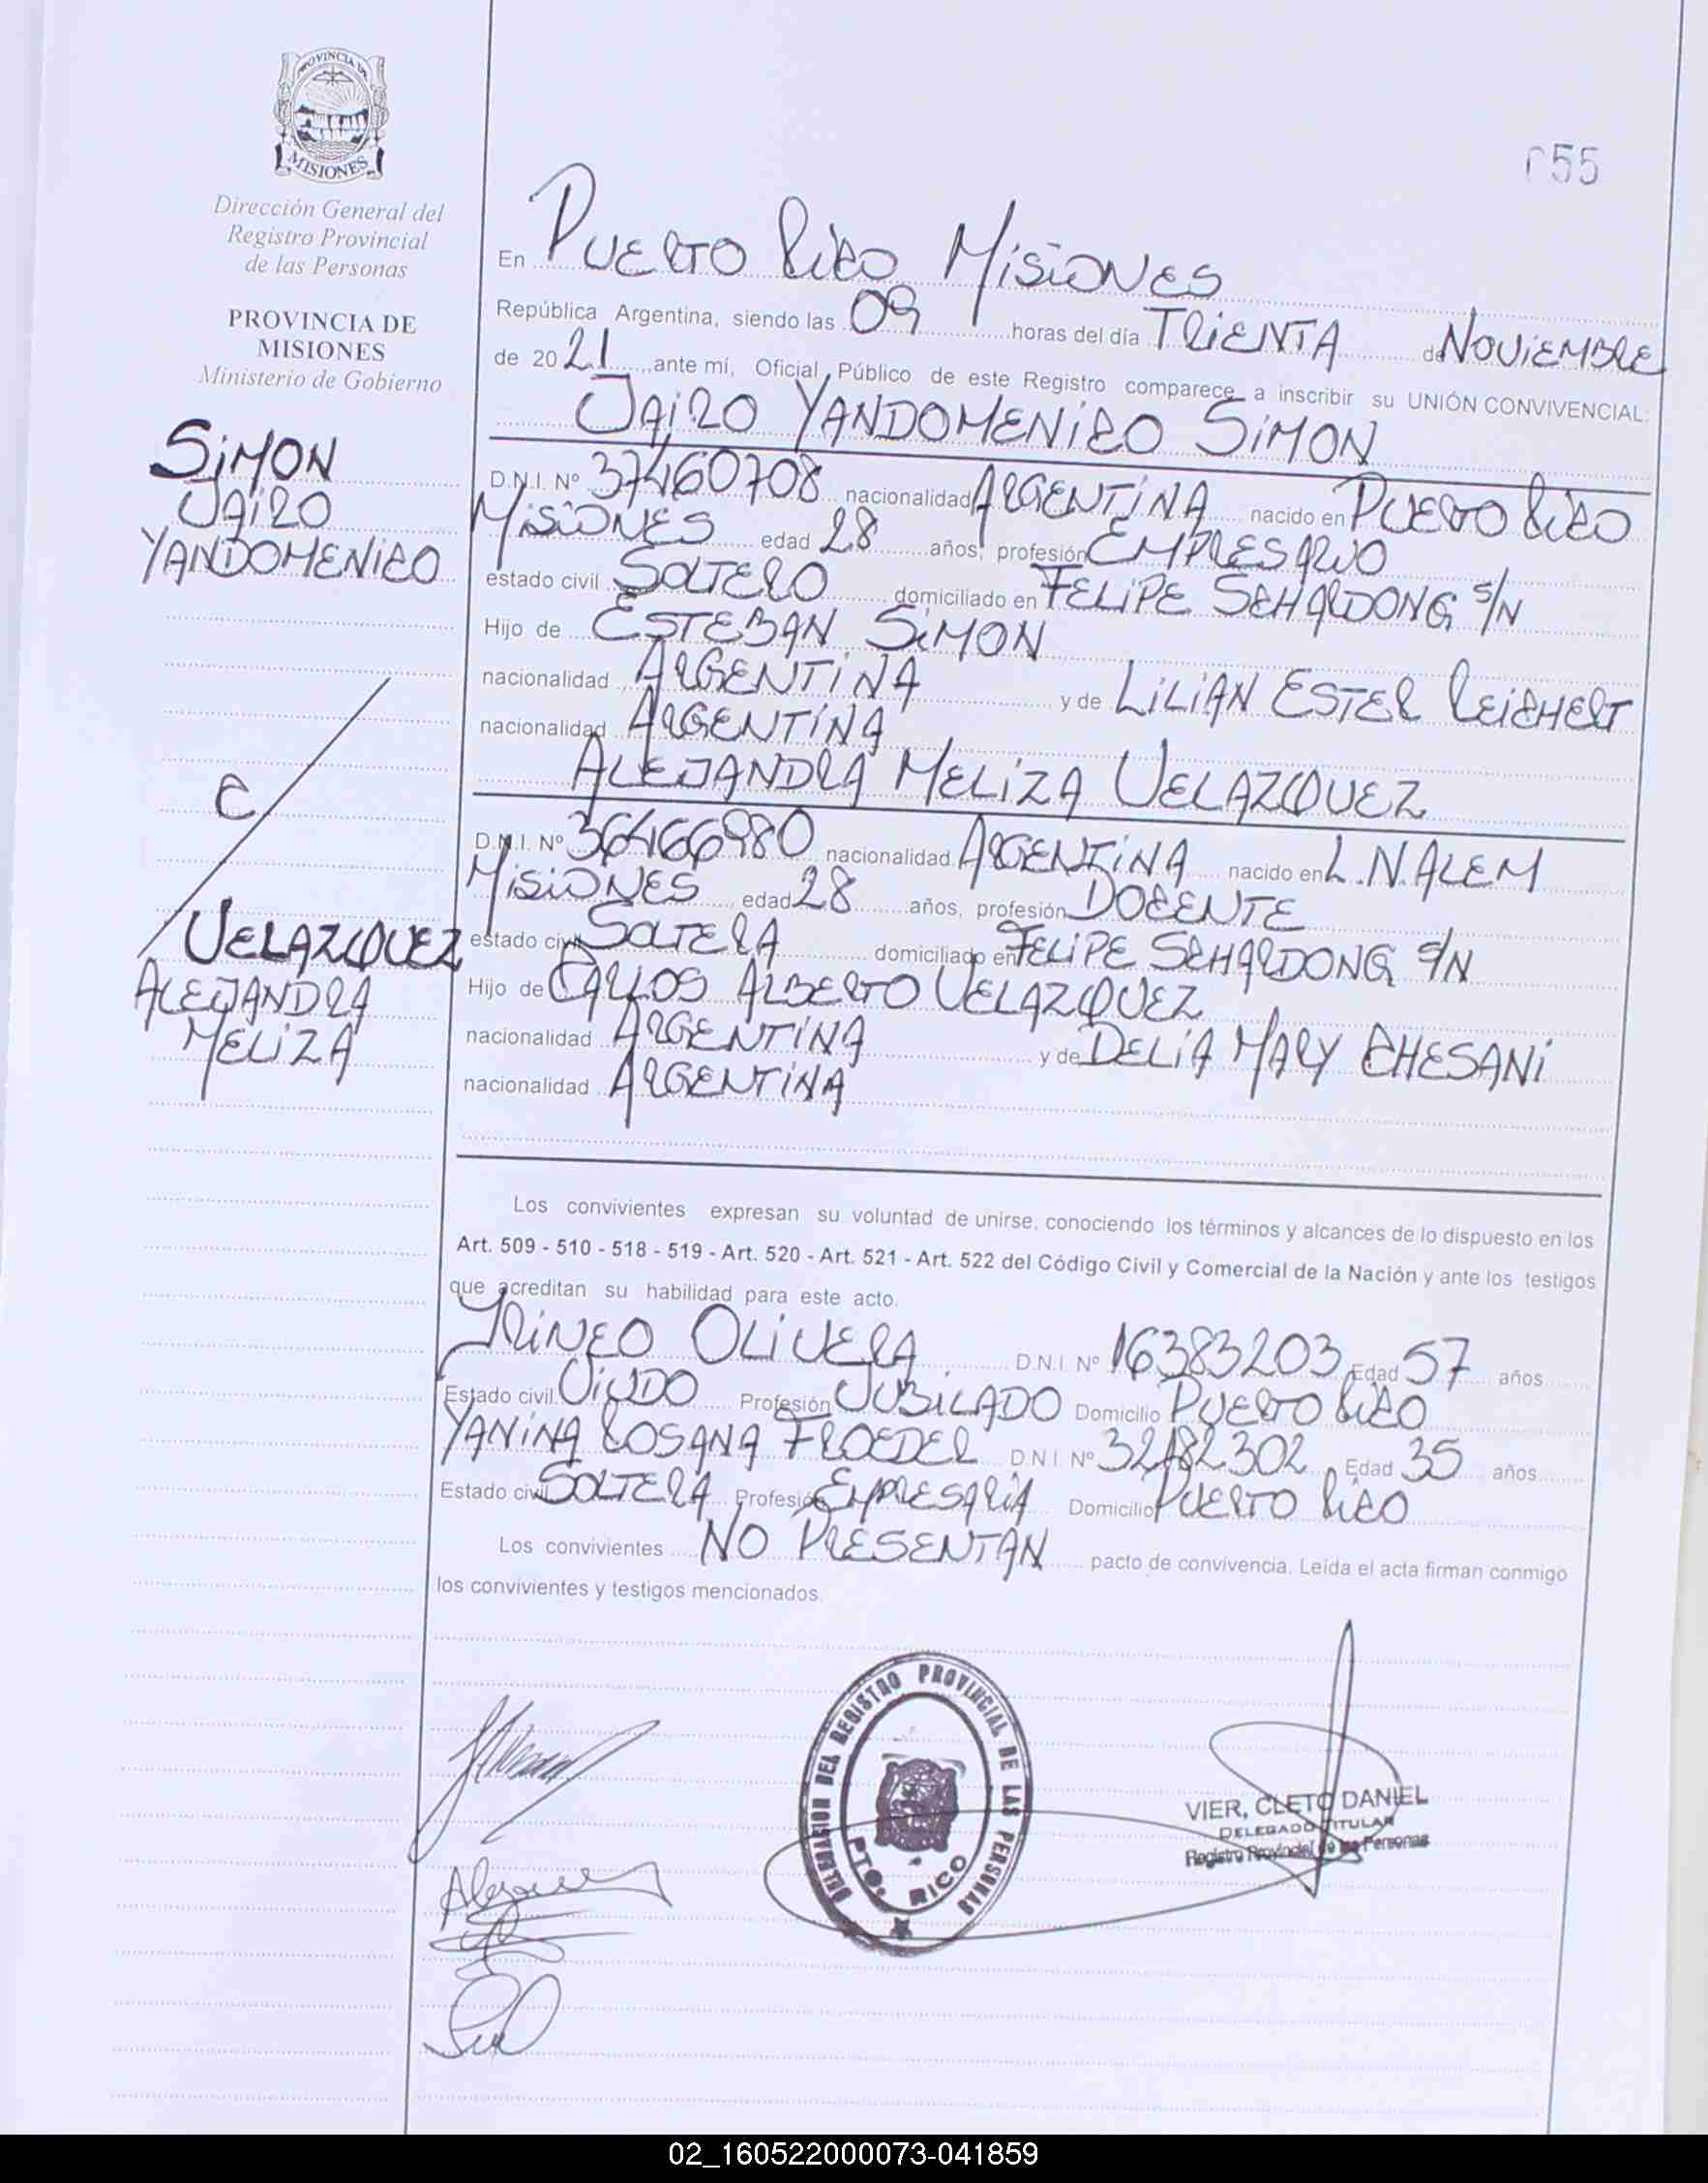 PROVINCIA DE
MISIONES
Dirección General del
Registro Provincial
de las Personas
PROVINCIA DE
MISIONES
Ministerio de Gobierno
SiMON
JAiRO
YANDOMENiCO
C/
VELAZQUEZ
ALEJANDRA
MELiZA
055
En PUERTO RiCO MiSiONES
República Argentina, siendo las 09 horas del día TRiENTA de NOViEMBRE
de 2021 ante mí, Oficial Público de este Registro comparece a inscribir su UNIÓN CONVIVENCIAL:
JAiRO YANDOMENiCO SiMON
D.N.I. Nº 37460708 nacionalidad ARGENTiNA nacido en PUERTO RiCO
MiSiONES edad 28 años, profesión EMPRESARiO
estado civil SOLTERO domiciliado en FELiPE SCHARDONG S/N
Hijo de ESTEBAN SiMON
nacionalidad ARGENTiNA y de LiLiAN ESTER REiCHERT
nacionalidad ARGENTiNA
ALEJANDRA MELiZA VELAZQUEZ
D.N.I. Nº 36466980 nacionalidad ARGENTiNA nacido en L.N.ALEM
MiSiONES edad 28 años, profesión DOCENTE
estado civil SOLTERA domiciliado en FELiPE SCHARDONG S/N
Hijo de CARLOS ALBERTO VELAZQUEZ
nacionalidad ARGENTiNA y de DELiA MARY CHESANi
nacionalidad ARGENTiNA
Los convivientes expresan su voluntad de unirse, conociendo los términos y alcances de lo dispuesto en los
Art. 509 - 510 - 518 - 519 - Art. 520 - Art. 521 - Art. 522 del Código Civil y Comercial de la Nación y ante los testigos
que acreditan su habilidad para este acto.
YRiNEO OLiVERA D.N.I. Nº 16383203 Edad 57 años
Estado civil ViUDO Profesión JUBiLADO Domicilio PUERTO RiCO
YANiNA ROSANA FROEDER D.N.I. Nº 32482302 Edad 35 años
Estado civil SOLTERA Profesión EMPRESARiA Domicilio PUERTO RiCO
Los convivientes NO PRESENTAN pacto de convivencia. Leída el acta firman conmigo
los convivientes y testigos mencionados.
DELEGACION DEL REGISTRO PROVINCIAL DE LAS PERSONAS
PTO. RICO
VIER, CLETO DANIEL
DELEGADO TITULAR
Registro Provincial de las Personas
02_160522000073-041859